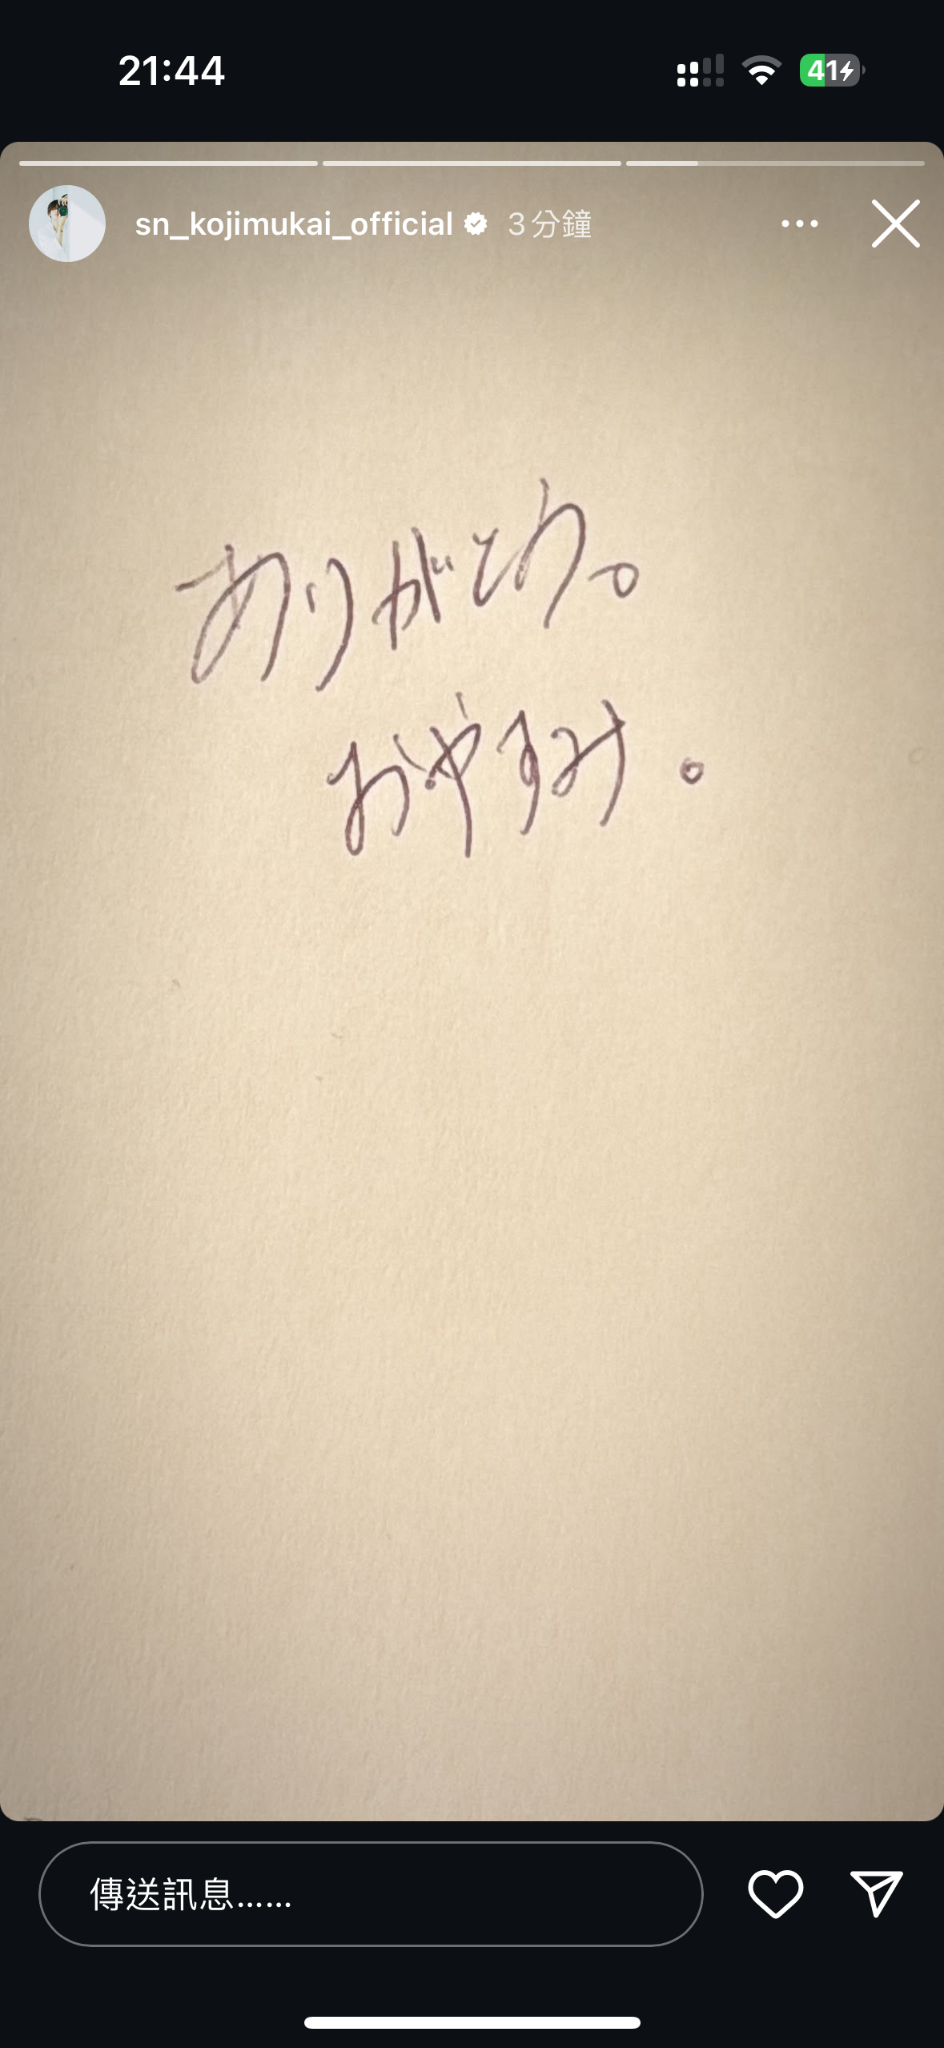 21:44
41
sn_kojimukai_official 3分鐘
ありがとう。
おやすみ。
傳送訊息......